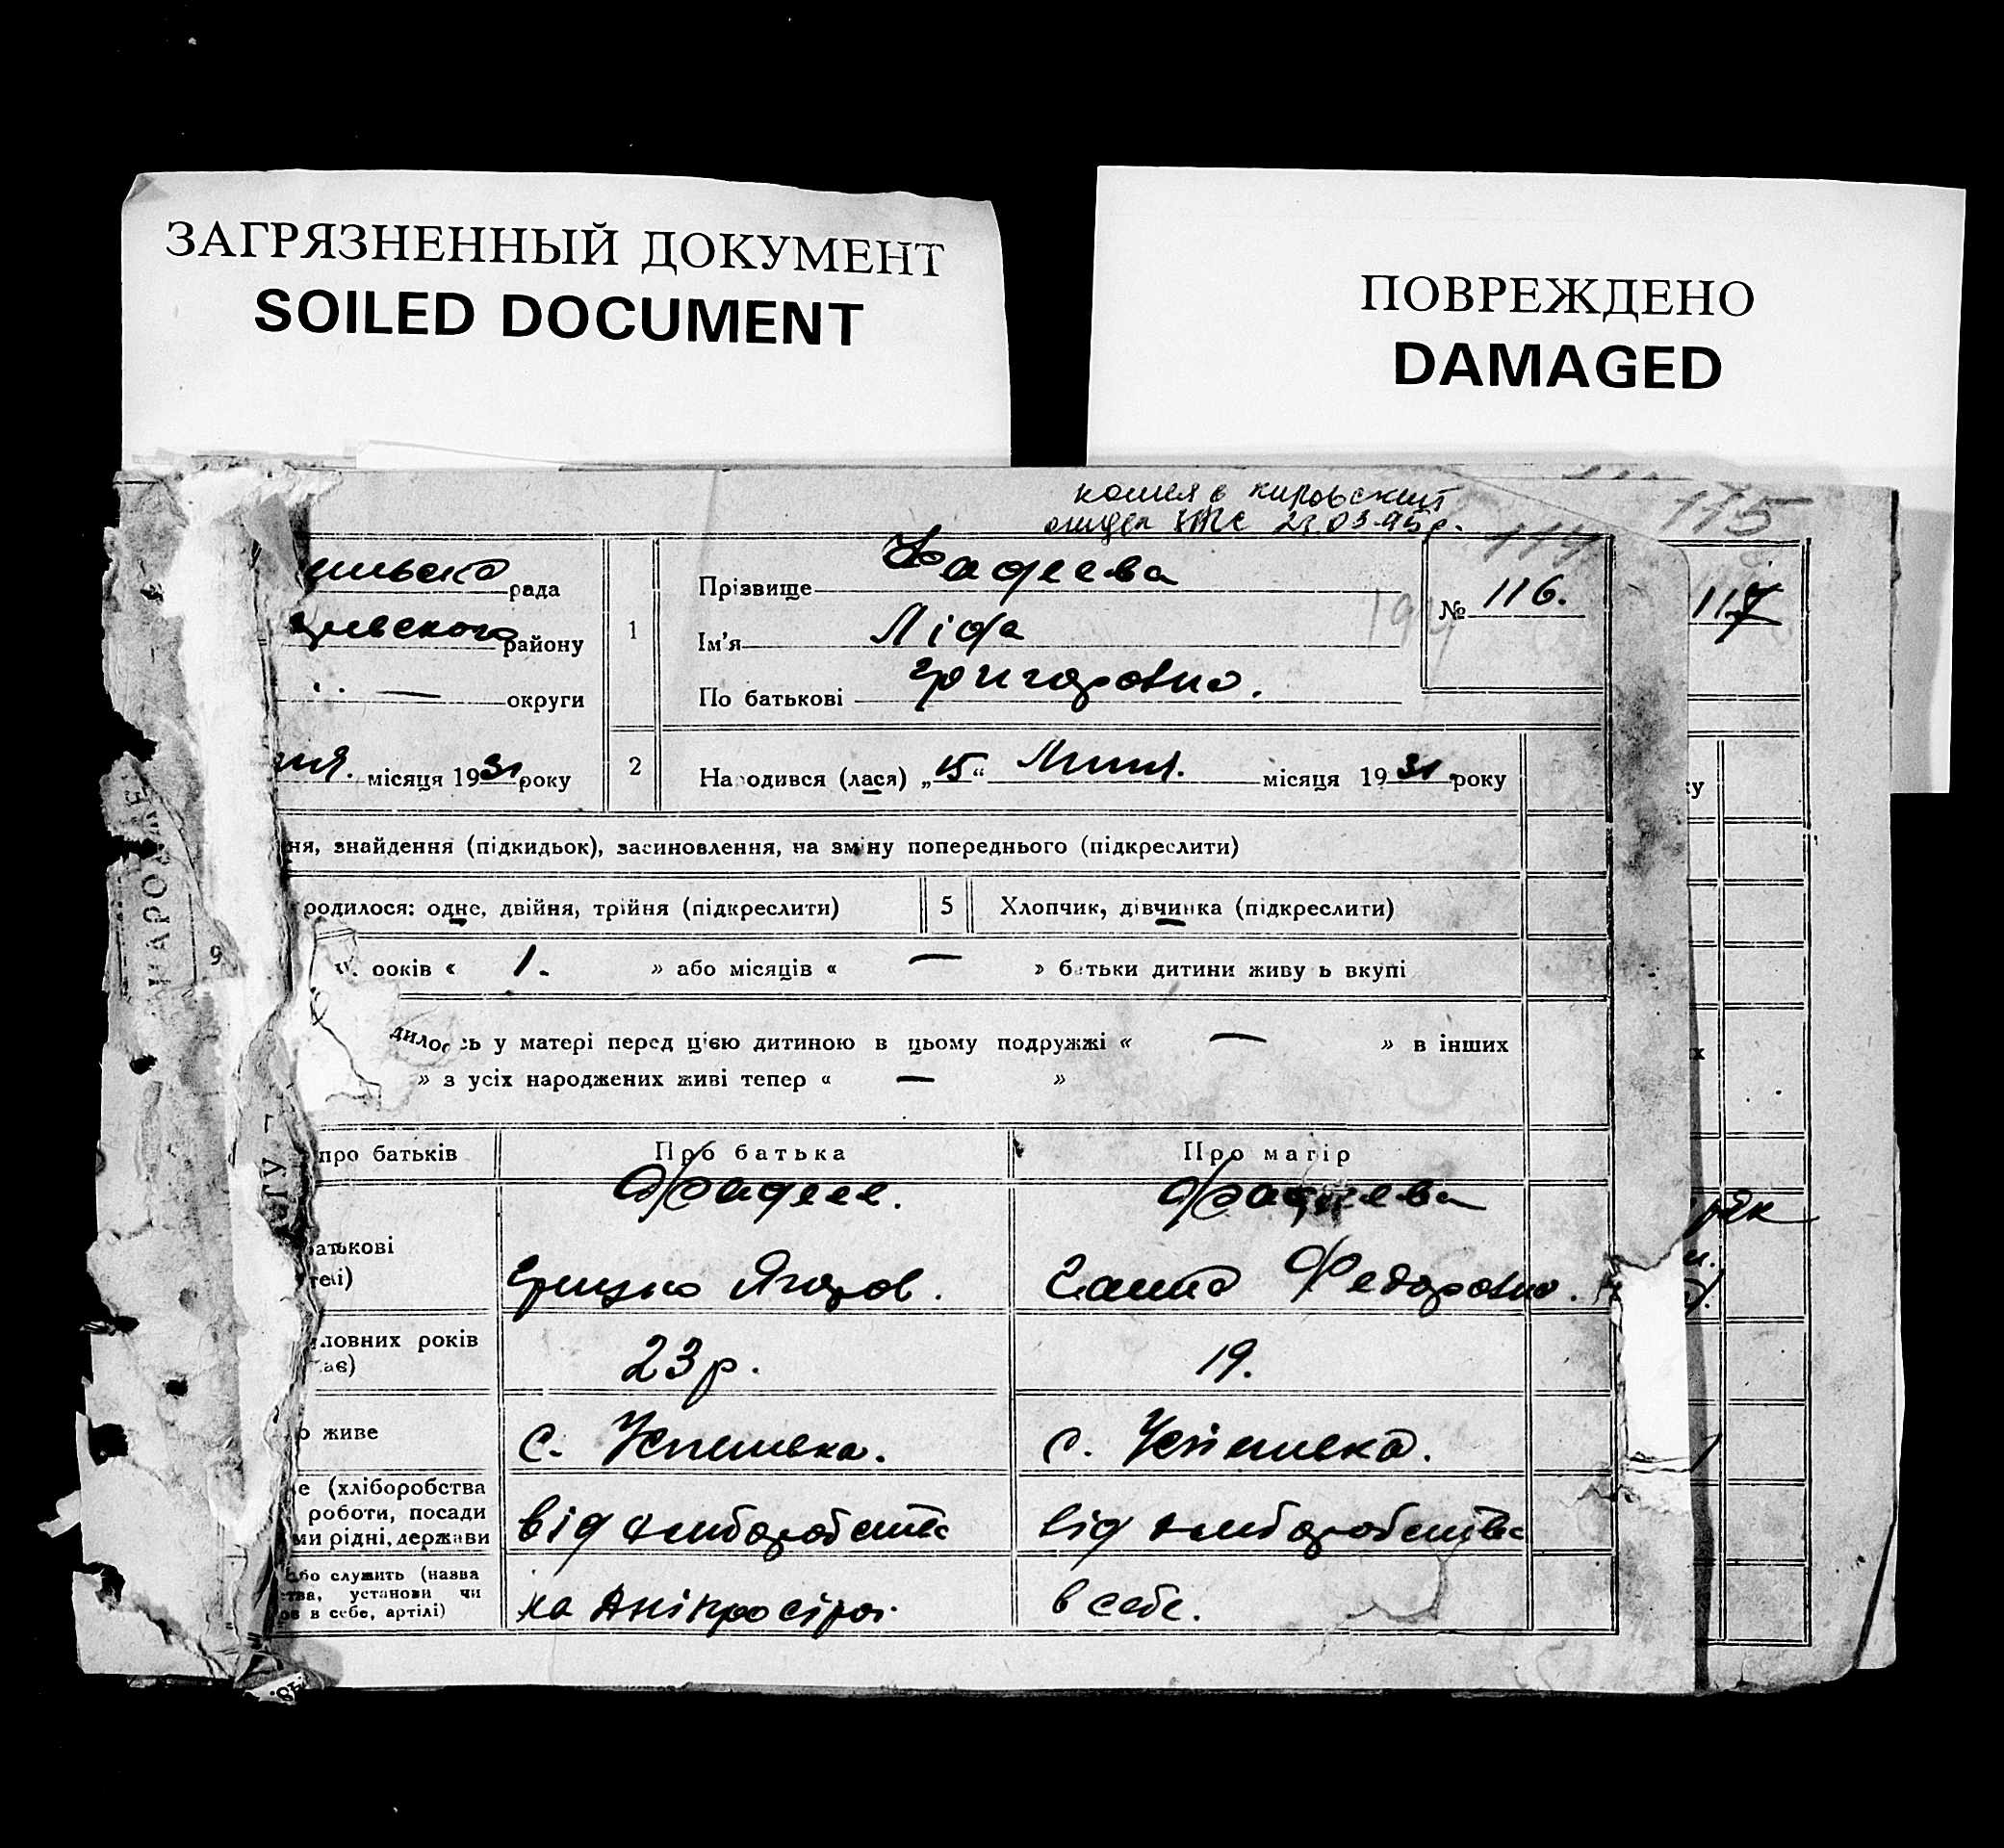 ЗАГРЯЗНЕННЫЙ ДОКУМЕНТ
SOILED DOCUMENT
ПОВРЕЖДЕНО
DAMAGED
115
копия в кировский
отдел 23.03.95р.
114
рада
району
округи
місяця 1931 року
1
Прізвище Фадеева
Ім'я Ліда
По батькові Григоровна.
№ 116.
117
2
Народився (лася) „15“ місяця 1931 року
ня, знайдення (підкидьок), засиновлення, на зміну попереднього (підкреслити)
родилося: одне, двійня, трійня (підкреслити)
5
Хлопчик, дівчинка (підкреслити)
9
років « 1. » або місяців « — » батьки дитини живуть вкупі
дилось у матері перед цією дитиною в цьому подружжі « — » в інших
» з усіх народжених живі тепер « — »
про батьків
Про батька
Про матір
батькові
Фадеев.
Грицько Ягоров.
Фадеева
Ганна Федоровна.
повних років
має)
23 р.
19.
живе
с. Успенівка.
с. Успенівка.
(хліборобства
роботи, посади
ми рідні, держави
від хліборобства
від хліборобства
або служить (назва
установи чи
в себе, артілі)
на Дніпрострої
в себе.